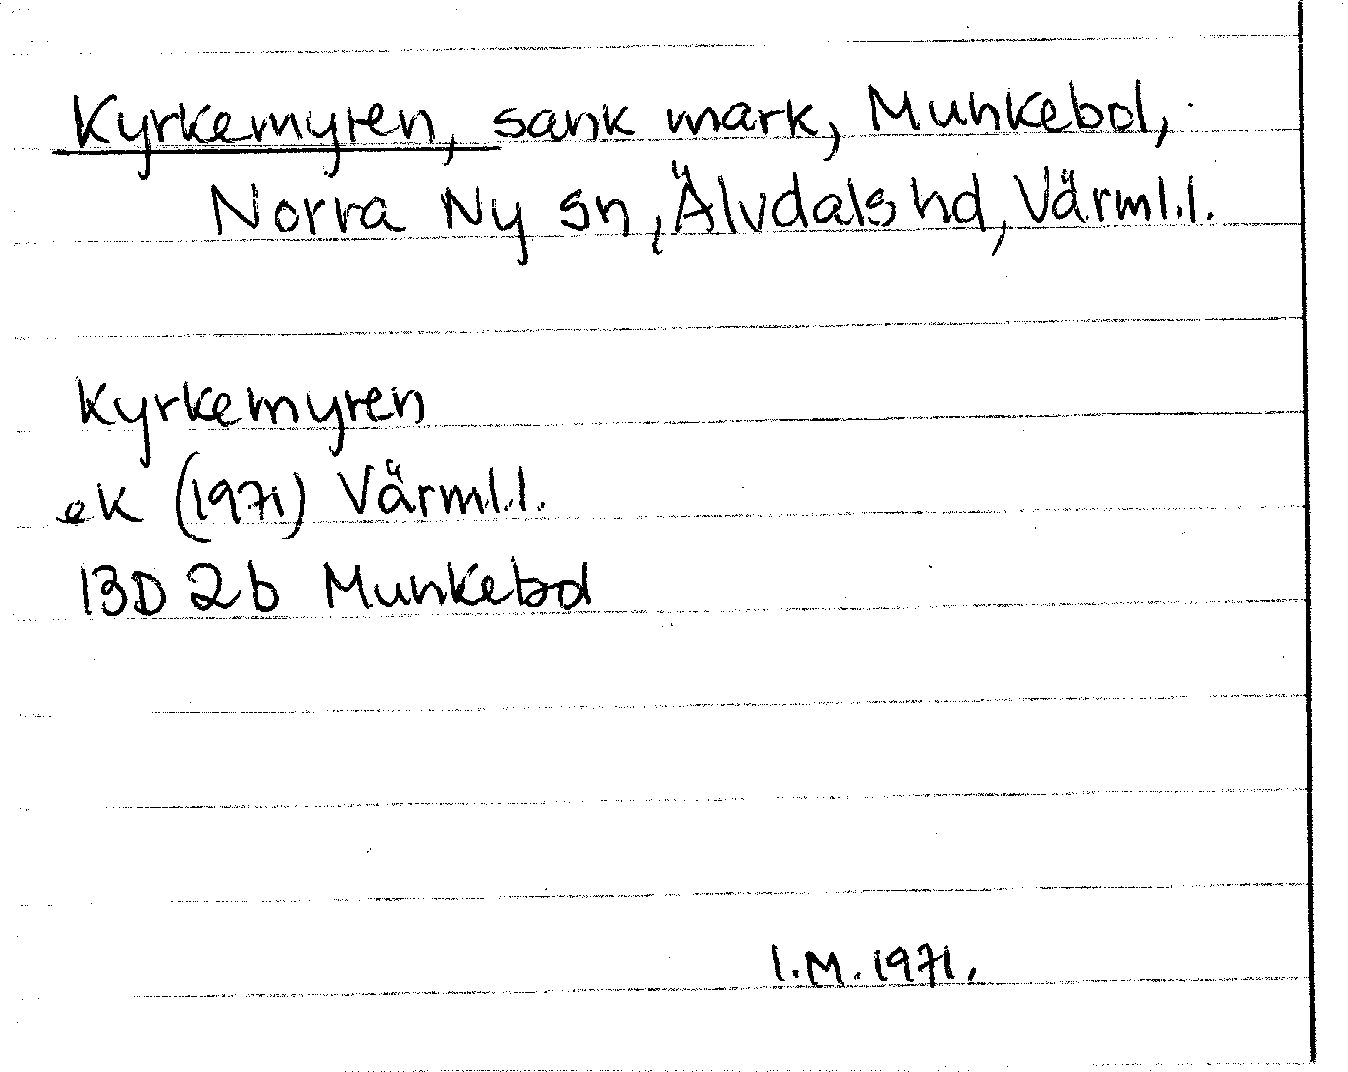 Kyrkemyren, sank mark, Munkebol,
Norra Ny sn, Älvdals hd, Värml.l.
Kyrkemyren
ek (1971) Värml.l.
13D 2b Munkebol
I.M. 1971.